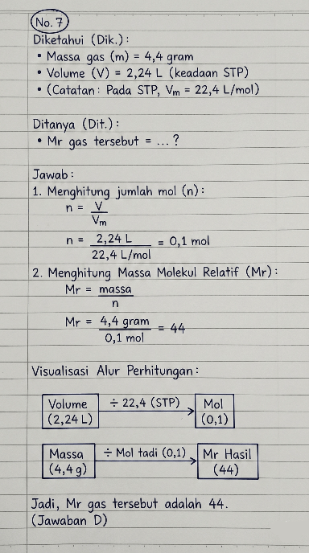 No. 7
Diketahui (Dik.):
• Massa gas (m) = 4,4 gram
• Volume (V) = 2,24 L (keadaan STP)
• (Catatan: Pada STP, Vm = 22,4 L/mol)
Ditanya (Dit.):
• Mr gas tersebut = ... ?
Jawab:
1. Menghitung jumlah mol (n):
n = V
Vm
n = 2,24 L = 0,1 mol
22,4 L/mol
2. Menghitung Massa Molekul Relatif (Mr):
Mr = massa
n
Mr = 4,4 gram = 44
0,1 mol
Visualisasi Alur Perhitungan:
Volume ÷ 22,4 (STP) Mol
(2,24 L) (0,1)
Massa ÷ Mol tadi (0,1) Mr Hasil
(4,4 g) (44)
Jadi, Mr gas tersebut adalah 44.
(Jawaban D)